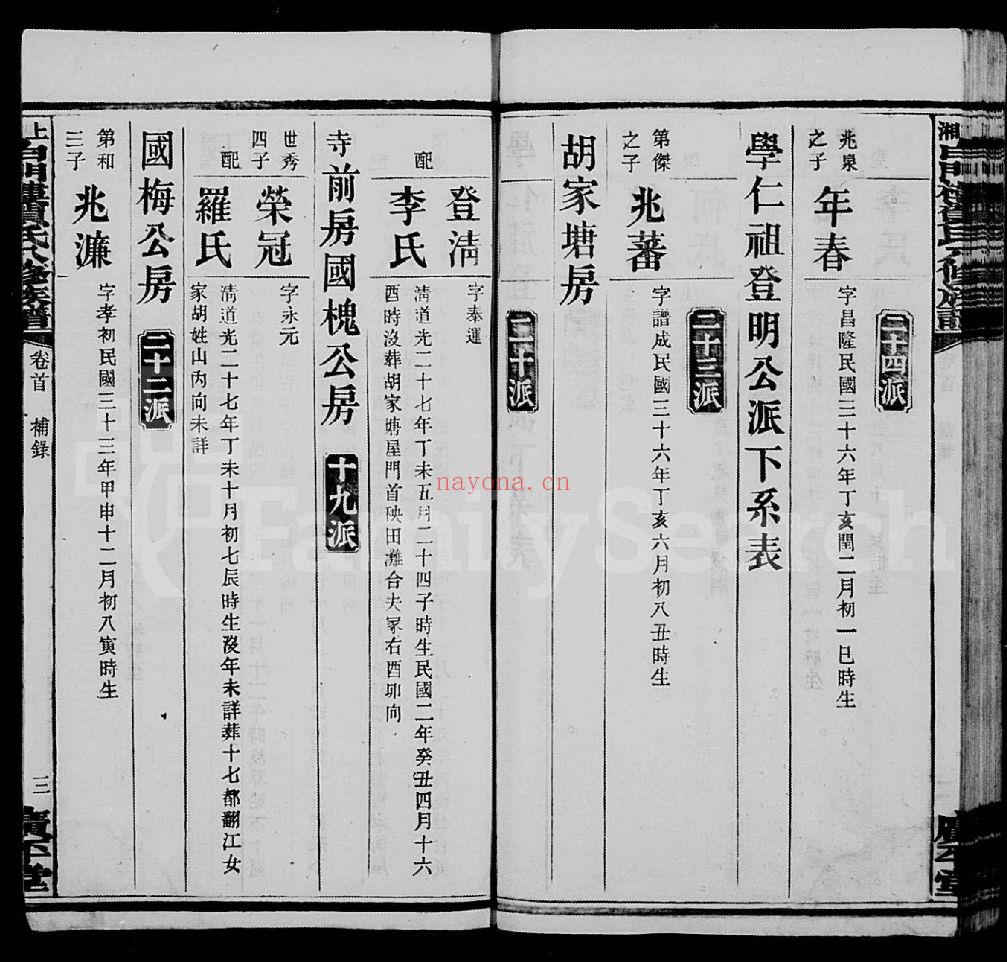 二十四派
兆泉之子
年春
字昌隆民國三十六年丁亥閏二月初一巳時生
學仁祖登明公派下系表
二十三派
第傑之子
兆蕃
字譜成民國三十六年丁亥六月初八丑時生
胡家塘房
二十派
登清
字奉運
配
李氏
清道光二十七年丁未五月二十四子時生民國二年癸丑四月十六
酉時沒葬胡家塘屋門首秧田灘合夫冢右酉卯向
寺前房國槐公房
十九派
世秀四子
榮冠
字永元
配
羅氏
清道光二十七年丁未十月初七辰時生沒年未詳葬十七都翻江女
家胡姓山內向未詳
國梅公房
二十二派
第和三子
兆濂
字孝初民國三十三年甲申十二月初八寅時生
卷首
補錄
三
nayona.cn
FamilySearch